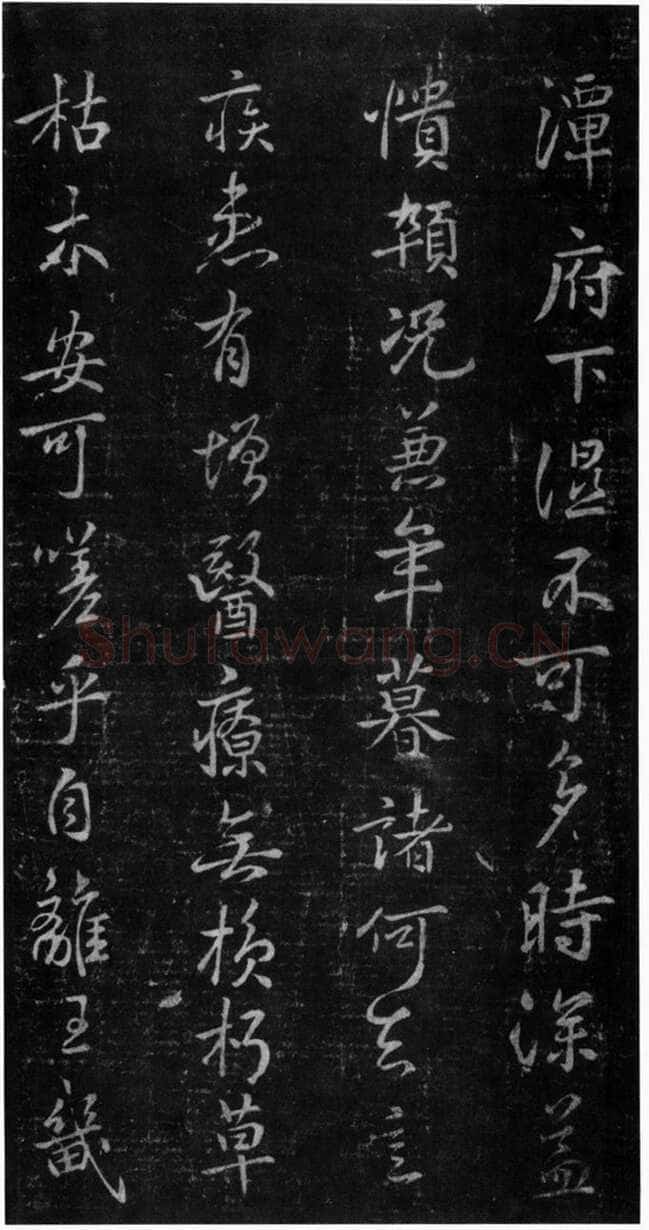 潭府下湿不可多時深益
憒頓況兼年暮諸何足言
疾患有增醫療無損朽草
枯木安可嗟乎自離王畿
Shufawang.CN